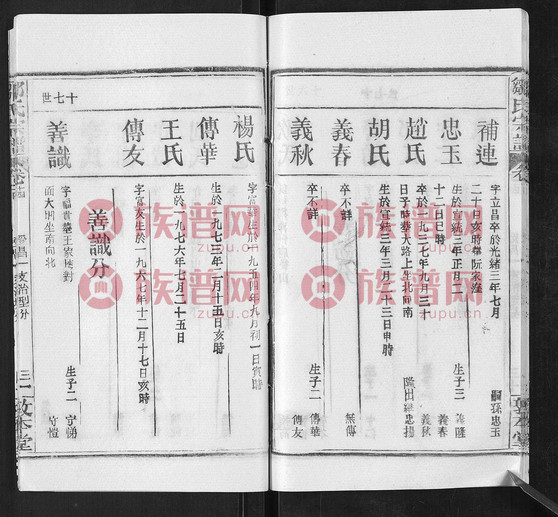 鄒氏宗譜
補連
字立昌卒於光緒二年七月
二十日亥時
嗣孫忠玉
忠玉
生於宣統三年正月二
十二日巳時
生子三
義隆
義春
義秋
趙氏
卒於一九三七年九月三十
日子時葬大路上生北向南
胡氏
生於宣統三年三月二十三日申時
義春
卒不詳
無傳
義秋
卒不詳
生子二
傳華
傳友
楊氏
字富華生於一九五四年九月初一日寅時
傳華
生於一九七三年二月十五日亥時
王氏
生於一九七六年七月二十五日
傳友
字富友生於一九六七年十二月十七日亥時
善識分
十七世
善識
字福貴葬王家塆對
面大坰坐南向北
生子二
守悌
守愷
敦本堂
族譜网
zupu.cn